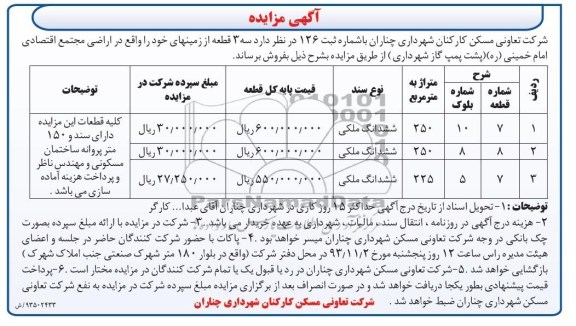 آگهی مزایده
شرکت تعاونی مسکن کارکنان شهرداری چناران باشماره ثبت ۱۲۶ در نظر دارد سه ۳ قطعه از زمینهای خود را واقع در اراضی مجتمع اقتصادی
امام خمینی (ره)(پشت پمپ گاز شهرداری) از طریق مزایده بشرح ذیل بفروش برساند.
ردیف شرح متراژ به مترمربع نوع سند قیمت پایه کل قطعه مبلغ سپرده شرکت در مزایده توضیحات
شماره قطعه شماره بلوک
۱ ۷ ۱۰ ۲۵۰ ششدانگ ملکی ۶۰۰/۰۰۰/۰۰۰ ریال ۳۰/۰۰۰/۰۰۰ ریال
۲ ۸ ۸ ۲۵۰ ششدانگ ملکی ۶۰۰/۰۰۰/۰۰۰ ریال ۳۰/۰۰۰/۰۰۰ ریال
۳ ۷ ۵ ۲۲۵ ششدانگ ملکی ۵۵۰/۰۰۰/۰۰۰ ریال ۲۷/۲۵۰/۰۰۰ ریال
کلیه قطعات این مزایده
دارای سند و ۱۵۰
متر پروانه ساختمان
مسکونی و مهندس ناظر
و پرداخت هزینه آماده
سازی می باشد .
توضیحات : ۱- تحویل اسناد از تاریخ درج آگهی حداکثر ۱۵ روز کاری در شهرداری چناران آقای عبدا... کارگر
۲- هزینه درج آگهی در روزنامه ، انتقال سند، مالیات ، شهرداری به عهده خریدار می باشد. ۳- شرکت در مزایده با ارائه مبلغ سپرده بصورت
چک بانکی در وجه شرکت تعاونی مسکن شهرداری چناران میسر خواهد بود. ۴- پاکات با حضور شرکت کنندگان حاضر در جلسه و اعضای
هیئت مدیره راس ساعت ۱۲ روز پنجشنبه مورخ ۹۳/۱۱/۲ در محل دفتر شرکت (واقع در بلوار ۱۸۰ متر شهرک صنعتی جنب املاک شهرک)
بازگشایی خواهد شد. ۵-شرکت تعاونی مسکن شهرداری چناران در رد یا قبول یک یا تمام شرکت کنندگان در مزایده مختار است .۶-پرداخت
قیمت پیشنهادی بطور یکجا دریافت خواهد شد و در صورت انصراف بعد از برگزاری مزایده مبلغ سپرده شرکت در مزایده به نفع شرکت تعاونی
مسکن شهرداری چناران ضبط خواهد شد .
شرکت تعاونی مسکن کارکنان شهرداری چناران
۹۳۵۰۲۴۳۳/ش